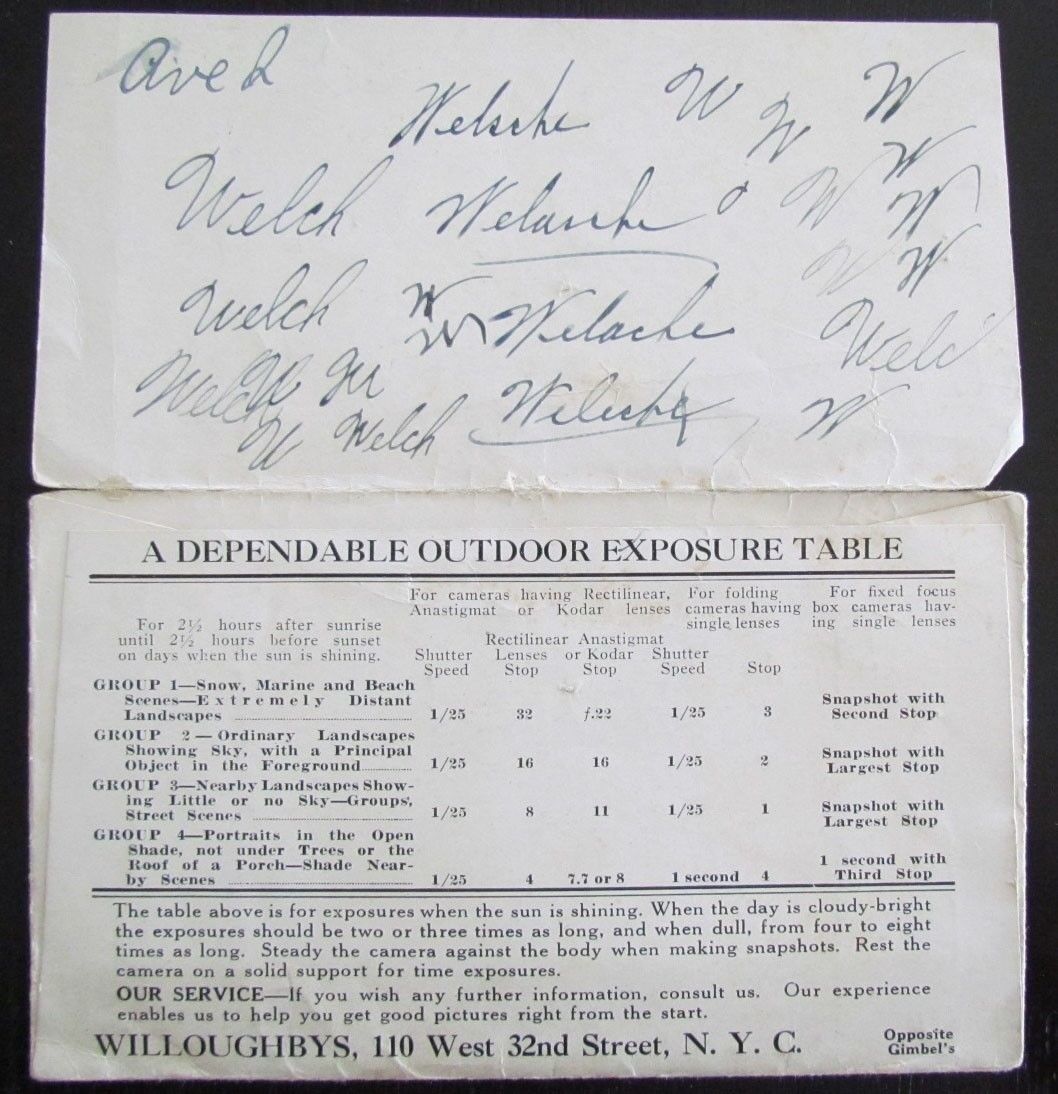 Welsche W W
W
Welch W W
W
Welch W W
W Welc
Welch W
W Welch W
A DEPENDABLE OUTDOOR EXPOSURE TABLE
For 2½ hours after sunrise
until 2½ hours before sunset
on days when the sun is shining.
For cameras having Rectilinear,
Anastigmat or Kodar lenses
For folding
cameras having
single lenses
For fixed focus
box cameras hav-
ing single lenses
Shutter
Speed
Rectilinear
Lenses
Stop
Anastigmat
or Kodar
Stop
Shutter
Speed
Stop
GROUP 1—Snow, Marine and Beach
Scenes—Extremely Distant
Landscapes 1/25 32 f.22 1/25 3 Snapshot with
Second Stop
GROUP 2—Ordinary Landscapes
Showing Sky, with a Principal
Object in the Foreground 1/25 16 16 1/25 2 Snapshot with
Largest Stop
GROUP 3—Nearby Landscapes Show-
ing Little or no Sky—Groups,
Street Scenes 1/25 8 11 1/25 1 Snapshot with
Largest Stop
GROUP 4—Portraits in the Open
Shade, not under Trees or the
Roof of a Porch—Shade Near-
by Scenes 1/25 4 7.7 or 8 1 second 4 1 second with
Third Stop
The table above is for exposures when the sun is shining. When the day is cloudy-bright
the exposures should be two or three times as long, and when dull, from four to eight
times as long. Steady the camera against the body when making snapshots. Rest the
camera on a solid support for time exposures.
OUR SERVICE—If you wish any further information, consult us. Our experience
enables us to help you get good pictures right from the start.
WILLOUGHBYS, 110 West 32nd Street, N. Y. C.
Opposite
Gimbel's